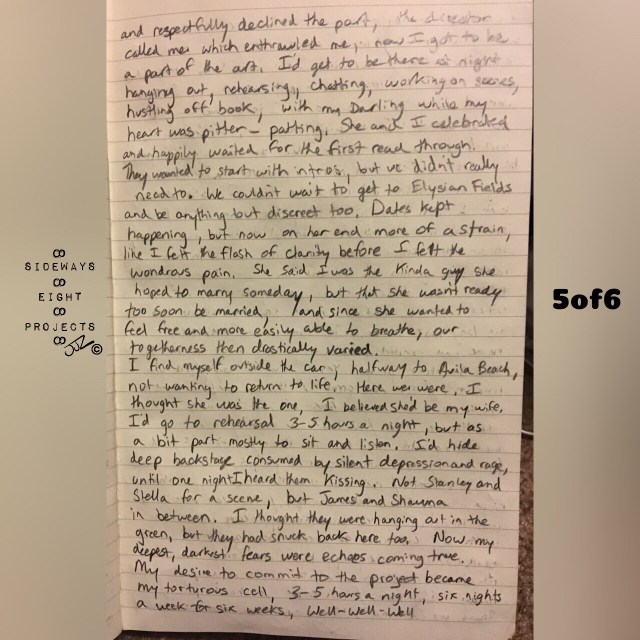 and respectfully declined the part, the director
called me, which enthrawled me, now I got to be
a part of the art. I'd get to be there at night
hanging out, rehearsing, chatting, working on scenes,
hustling off book, with my Darling while my
heart was pitter-patting. She and I celebrated
and happily waited for the first read through.
They wanted to start with intro's, but we didn't really
need to. We couldn't wait to get to Elysian Fields
and be anything but discreet too. Dates kept
happening, but now on her end more of a strain,
like I felt the flash of clarity before I felt the
wondrous pain. She said I was the kinda guy she
hoped to marry someday, but that she wasn't ready
too soon be married, and since she wanted to
feel free and more easily able to breathe, our
togetherness then drastically varied.
I find myself outside the car, halfway to Avila Beach,
not wanting to return to life. Here we were. I
thought she was the one, I believed she'd be my wife.
I'd go to rehearsal 3-5 hours a night, but as
a bit part mostly to sit and listen. I'd hide
deep backstage consumed by silent depression and rage,
until one night I heard them kissing. Not Stanley and
Stella for a scene, but James and Shauna
in between. I thought they were hanging out in the
green, but they had snuck back here too. Now my
deepest, darkest fears were echoes coming true.
My desire to commit to the project became
my torturous cell, 3-5 hours a night, six nights
a week for six weeks, Well-Well-Well
8
SIDEWAYS
8
EIGHT
8
PROJECTS
8
©
5of6